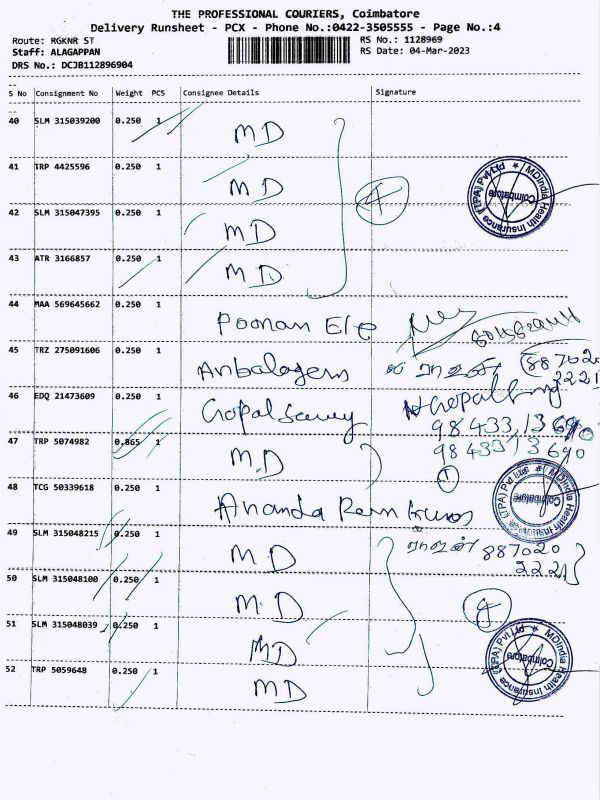 THE PROFESSIONAL COURIERS, Coimbatore
Delivery Runsheet - PCX - Phone No.:0422-3505555 - Page No.:4
Route: RGKNR ST RS No.: 1128969
Staff: ALAGAPPAN RS Date: 04-Mar-2023
DRS No.: DCJB112896904
S No Consignment No Weight PCS Consignee Details Signature
40 SLM 315039200 0.250 1 MD
41 TRP 4425596 0.250 1 MD
42 SLM 315047395 0.250 1 MD
43 ATR 3166857 0.250 1 MD
4
MDIndia Health Insurance (TPA) Pvt Ltd ★ Coimbatore
44 MAA 569645662 0.250 1 Poonam
45 TRZ 275091606 0.250 1 Anbalagem 887020
2221
46 EDQ 21473609 0.250 1 Gopalsamy
98433,13690
47 TRP 5074982 0.865 1 M.D 9843313690
1
MDIndia Health Insurance (TPA) Pvt Ltd ★ Coimbatore
48 TCG 50339618 0.250 1 Ananda
49 SLM 315048215 0.250 1 MD 887020
2221
50 SLM 315048100 0.250 1 M.D
51 SLM 315048039 0.250 1 MD
MDIndia Health Insurance (TPA) Pvt Ltd ★ Coimbatore
52 TRP 5059648 0.250 1 MD